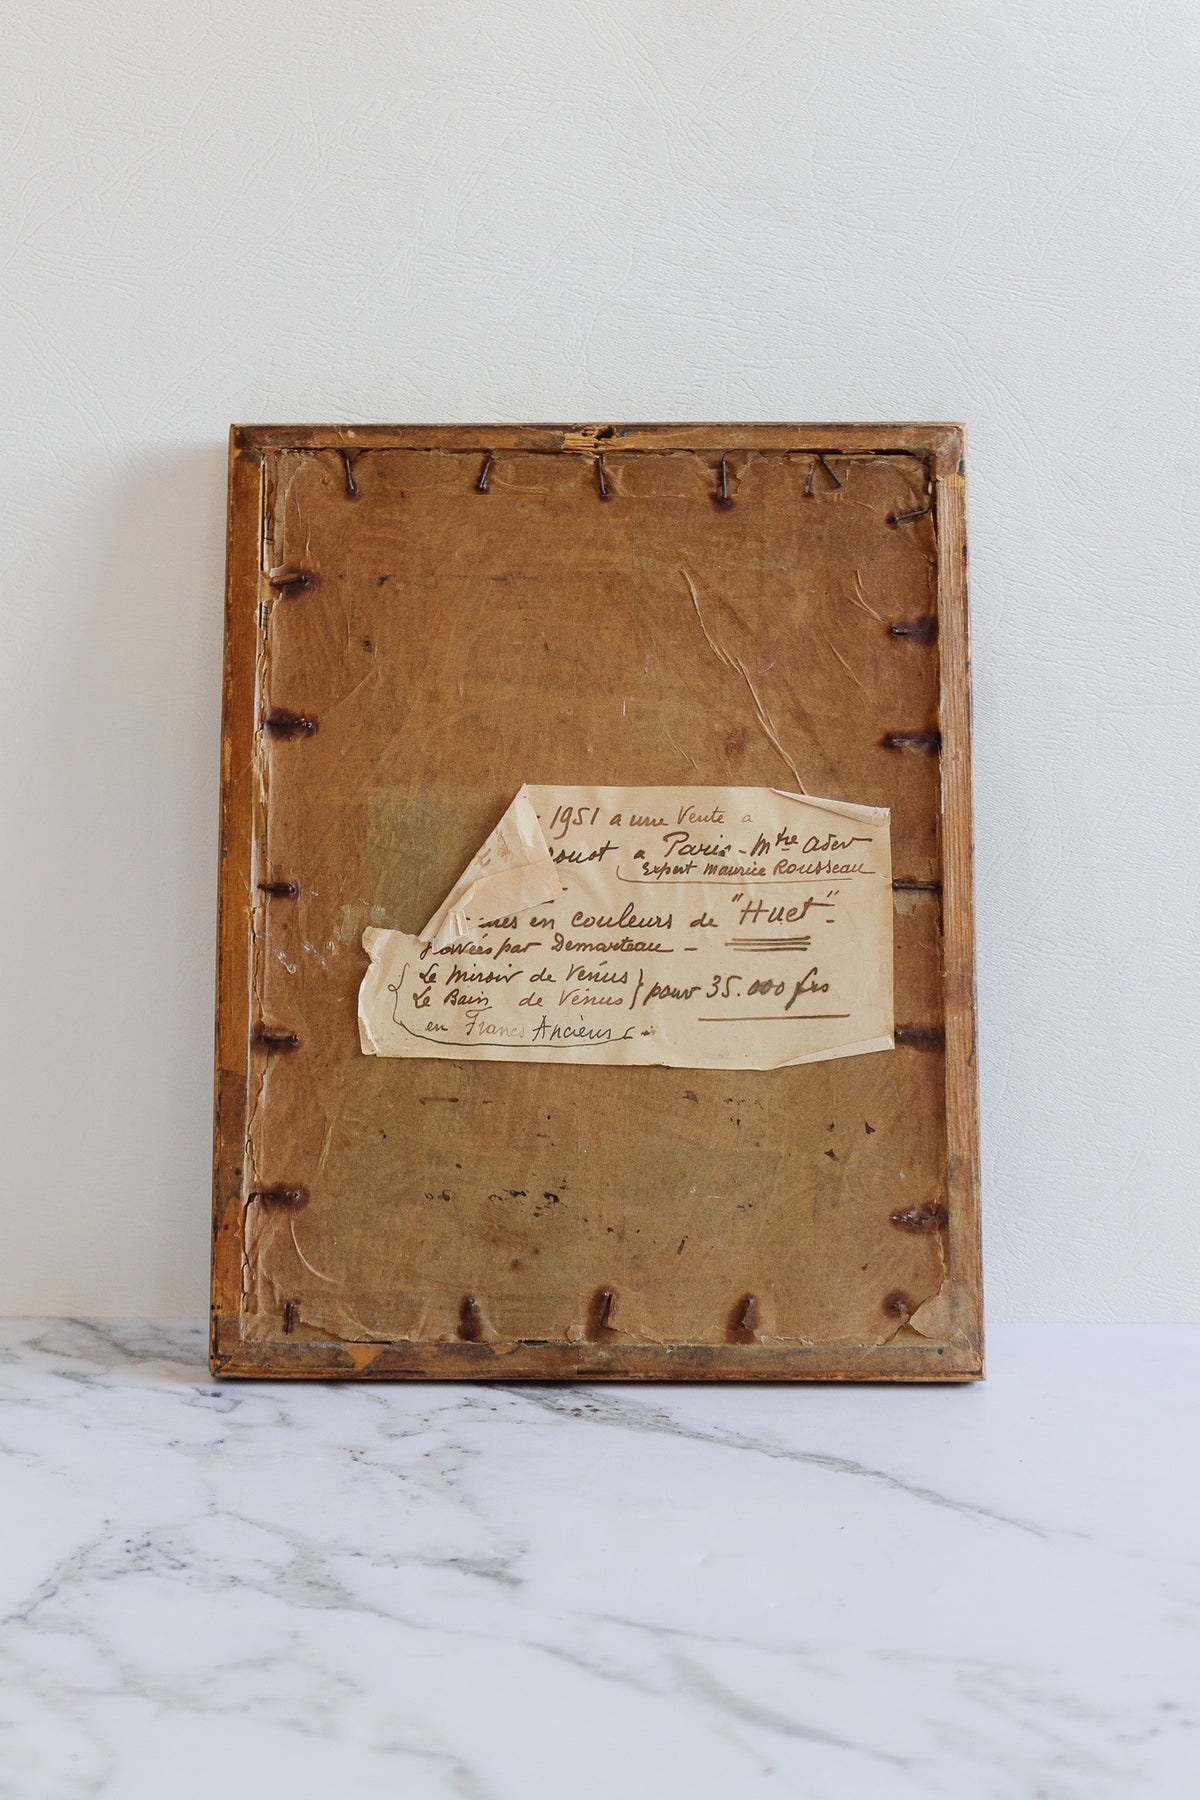 1951 a une Vente a
ouot a Paris - Mtre Ader
Expert Maurice Rousseau
en couleurs de "Huet" -
par Demarteau -
Le Miroir de Vénus
Le Bain de Vénus } pour 35.000 frs
en Francs Anciens